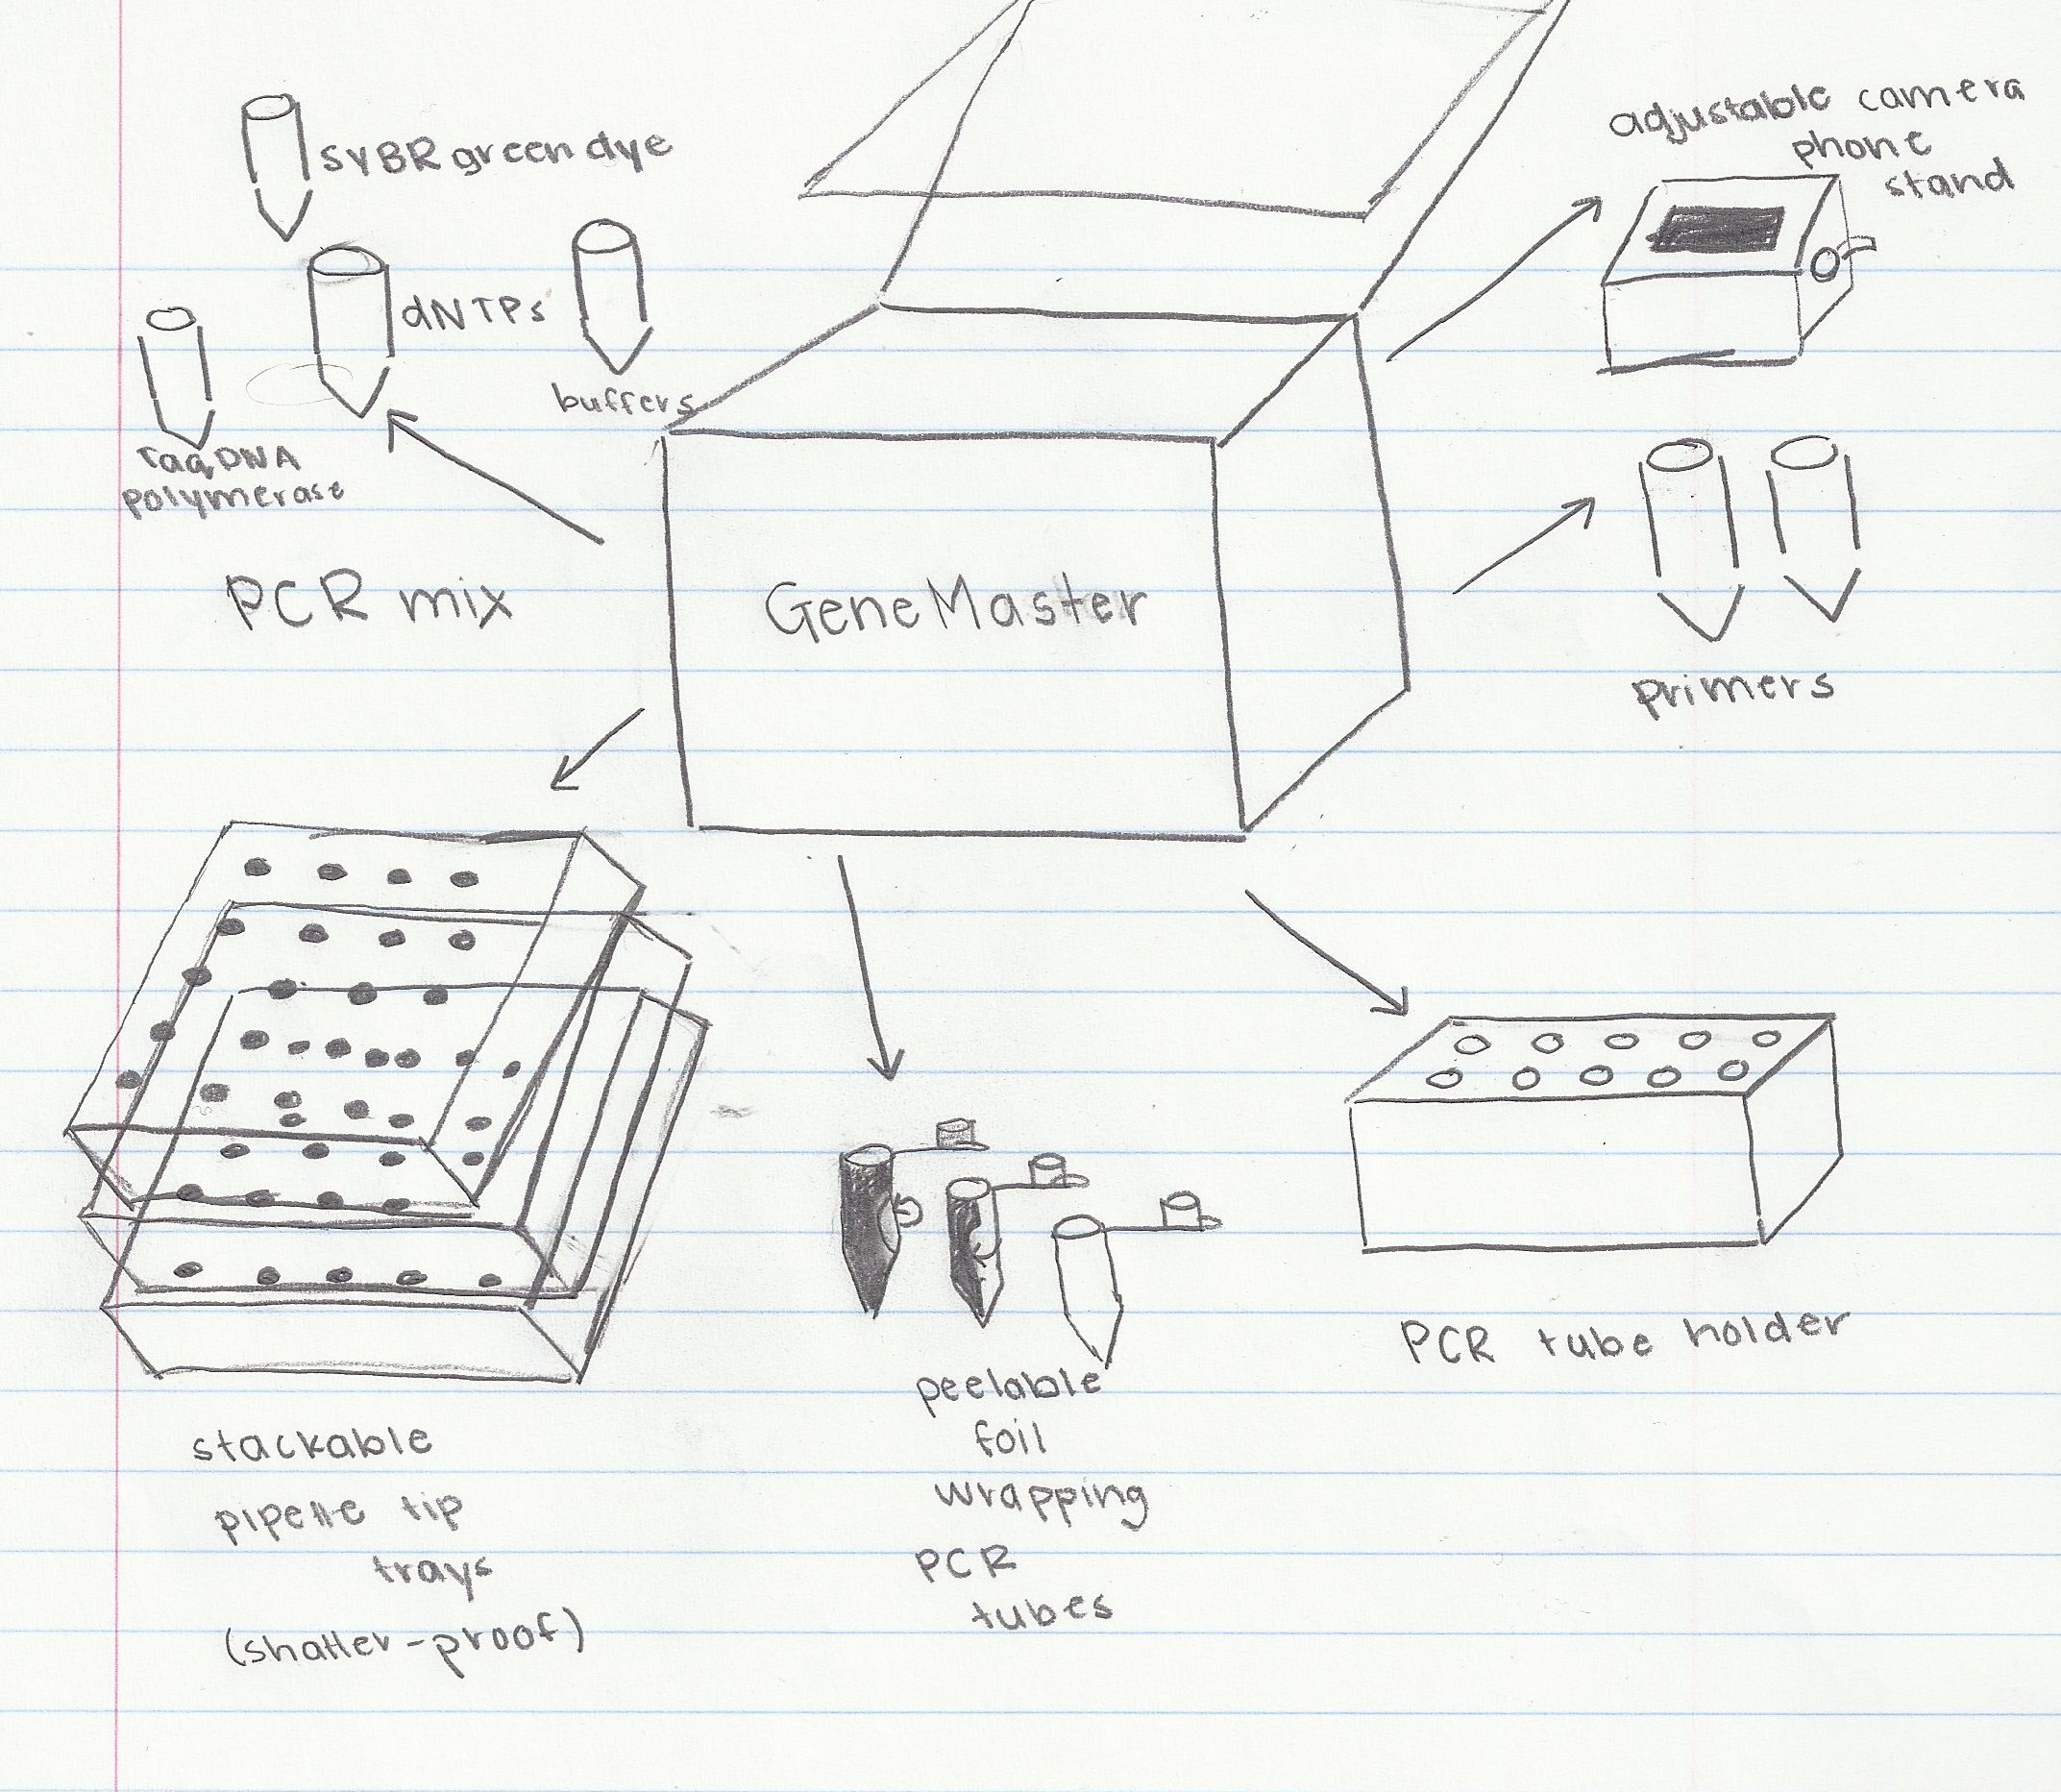 SYBR green dye
dNTPs
buffers
Taq DNA
polymerase
PCR mix
GeneMaster
adjustable camera
phone
stand
primers
stackable
pipette tip
trays
(shatter-proof)
peelable
foil
wrapping
PCR
tubes
PCR tube holder